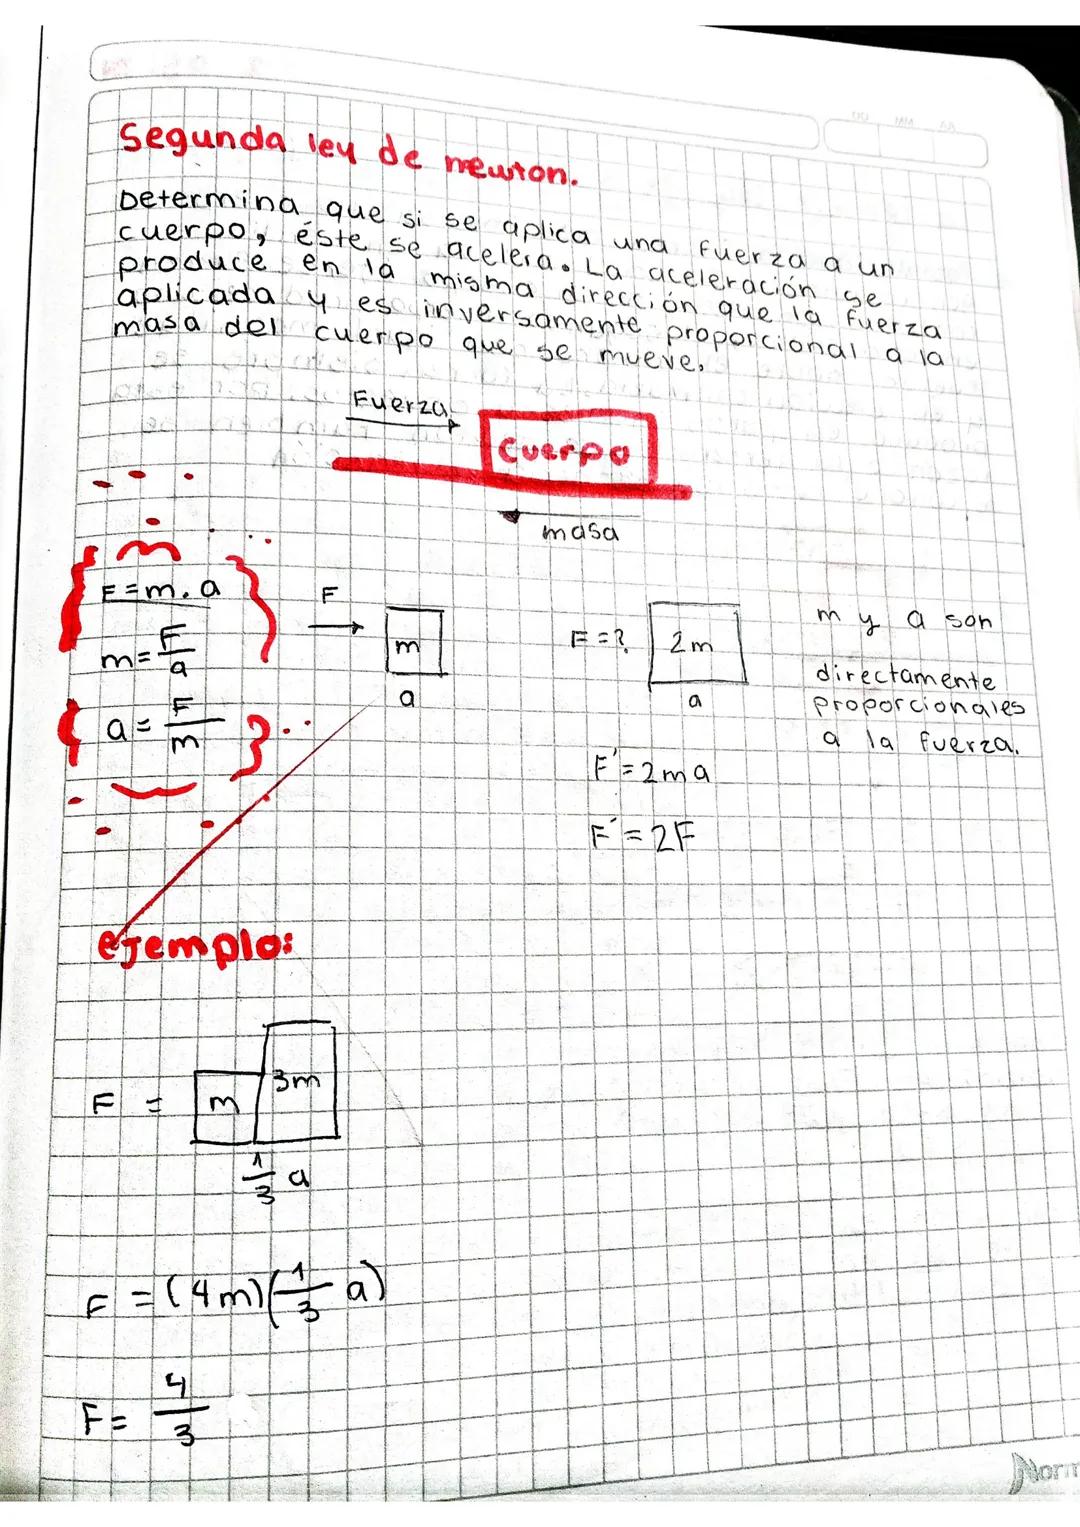 Segunda ley de newton.
Determina que si se aplica una fuerza a un
cuerpo, éste se acelera. La aceleración se
produce en la misma dirección que la fuerza
aplicada y es inversamente proporcional a la
masa del cuerpo que se mueve.
Fuerza
Cuerpo
masa
F=m.a
m=F/a
a=F/m
F
m
a
F=?
2m
a
F'=2ma
F'=2F
m y a son
directamente
proporcionales
a la fuerza.
ejemplo:
F = m 3m
1/3 a
F=(4m)(1/3 a)
F=4/3
Norm